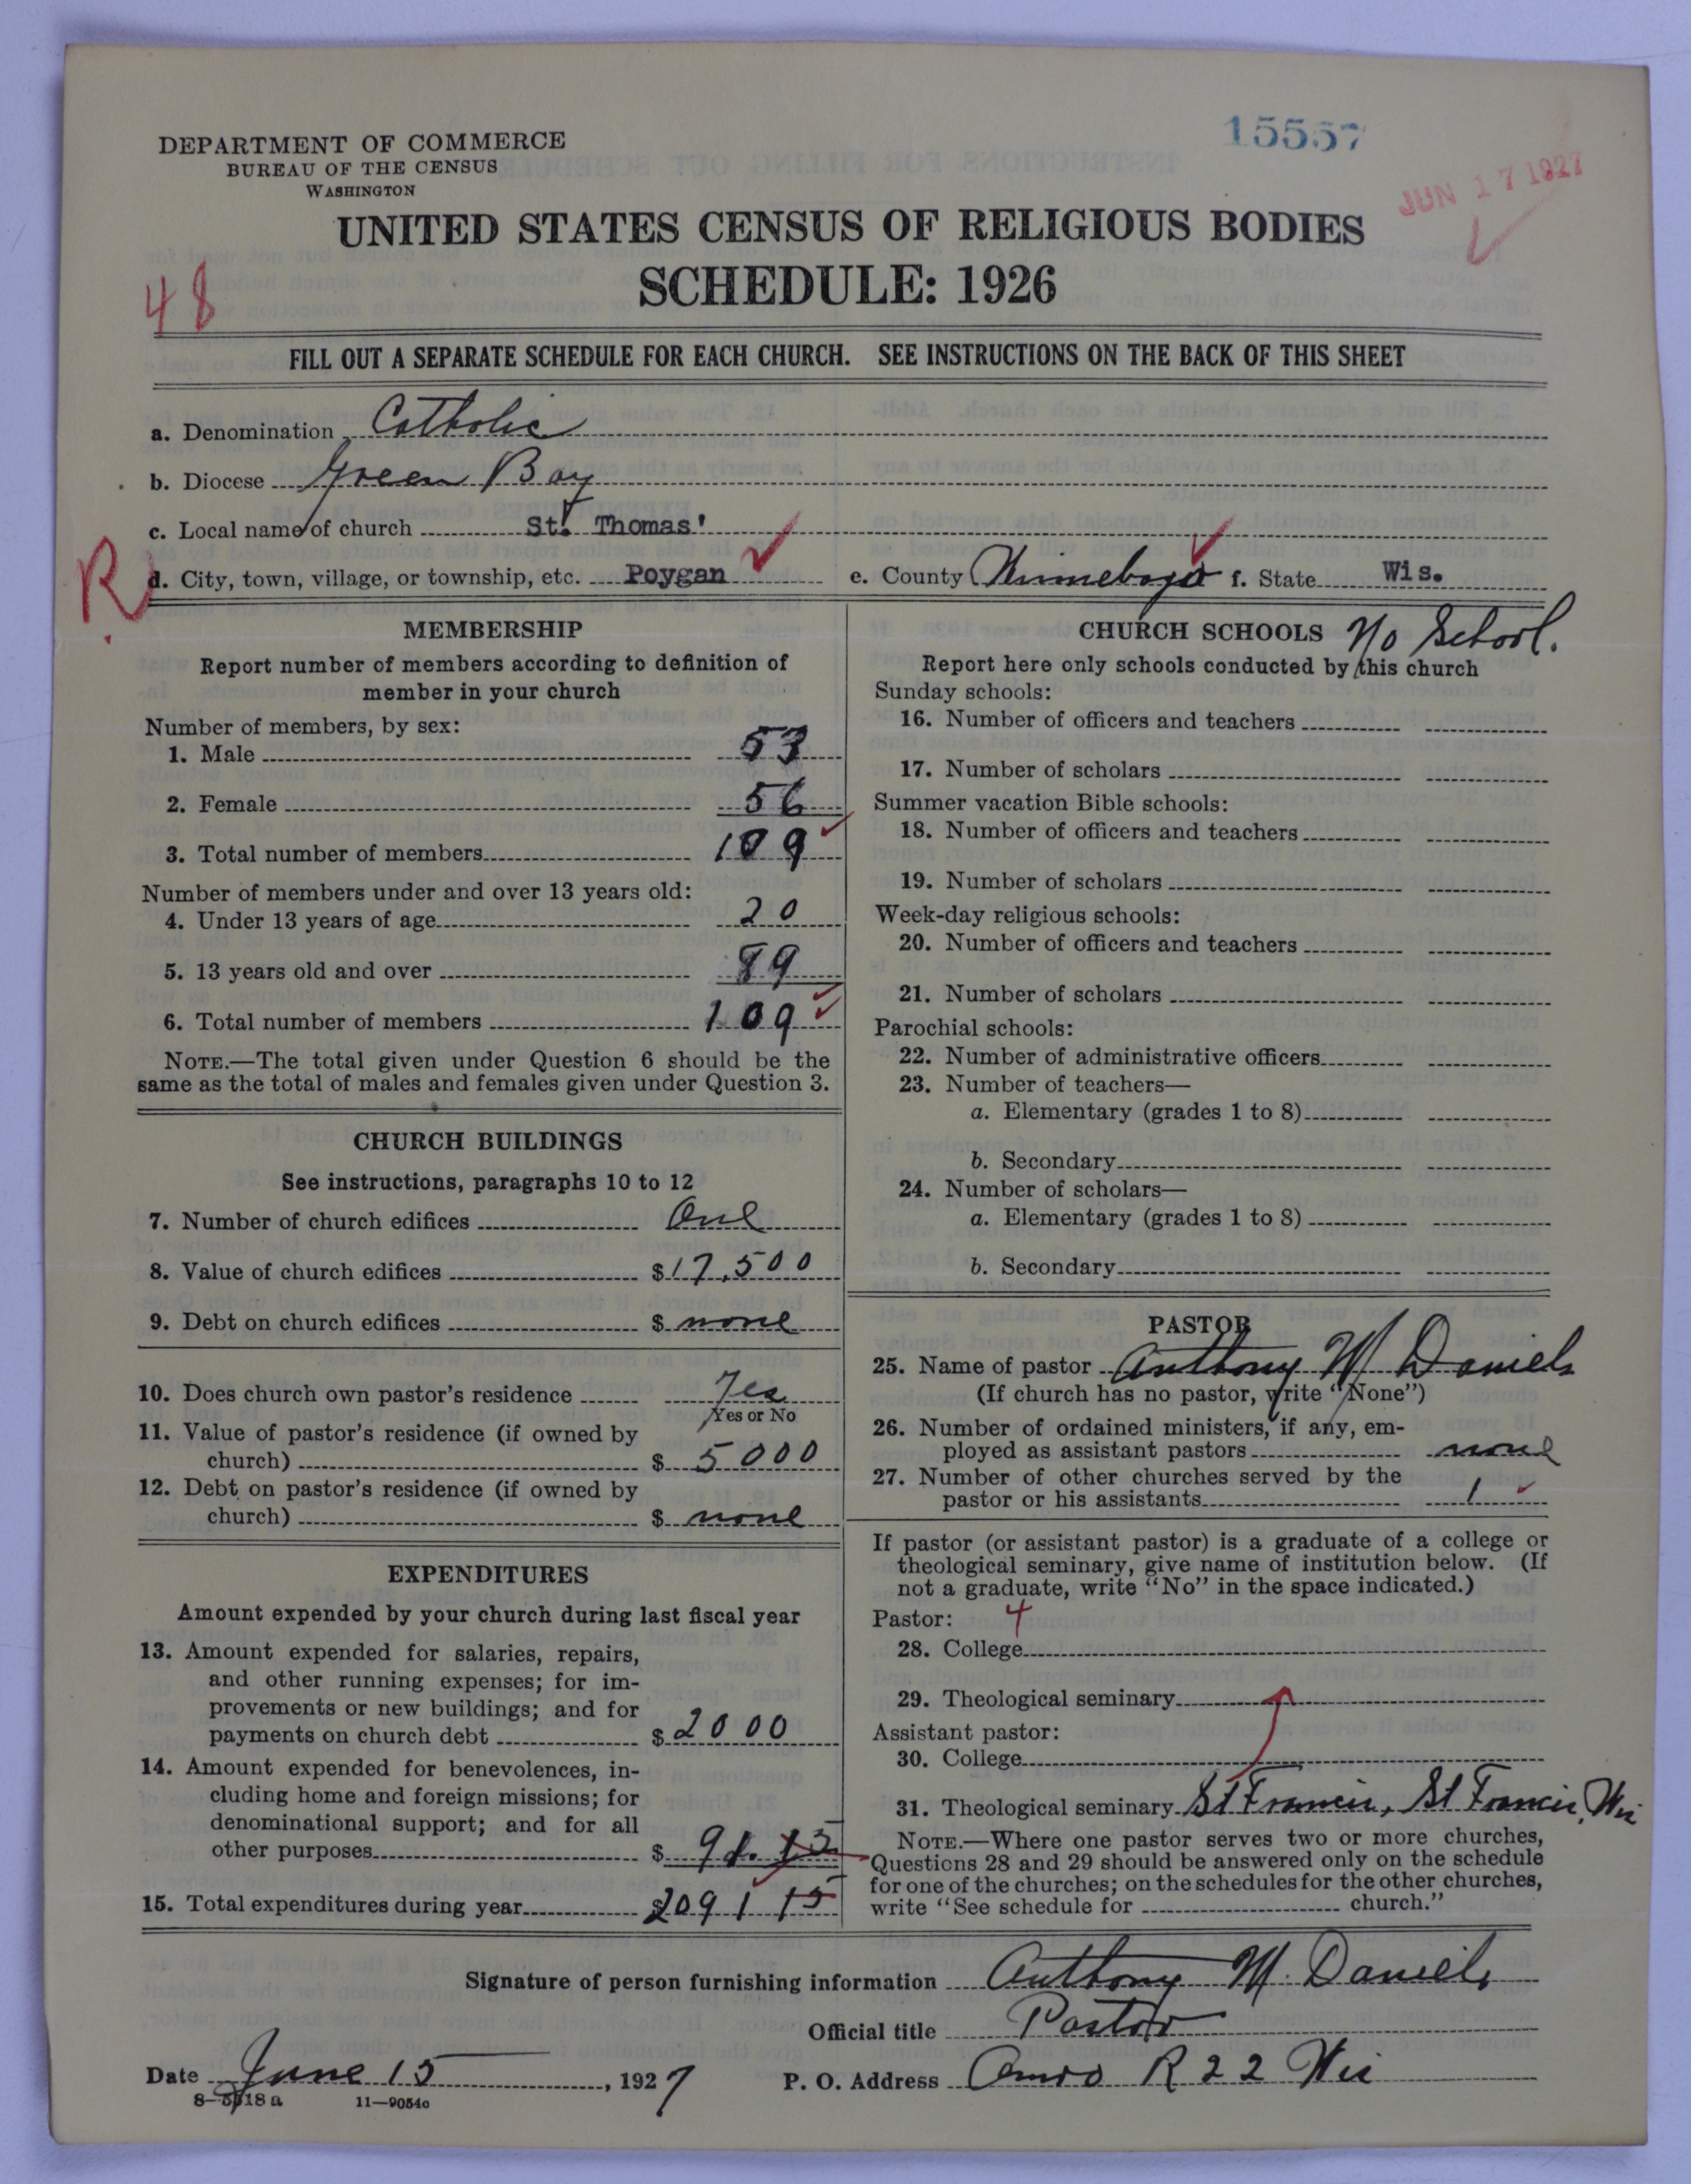 15557
JUN 17 1927
DEPARTMENT OF COMMERCE
BUREAU OF THE CENSUS
WASHINGTON
UNITED STATES CENSUS OF RELIGIOUS BODIES
SCHEDULE: 1926
48
FILL OUT A SEPARATE SCHEDULE FOR EACH CHURCH. SEE INSTRUCTIONS ON THE BACK OF THIS SHEET
a. Denomination Catholic
b. Diocese Green Bay
c. Local name of church St. Thomas'
R
d. City, town, village, or township, etc. Poygan e. County Winnebago f. State Wis.
MEMBERSHIP
Report number of members according to definition of
member in your church
Number of members, by sex:
1. Male 53
2. Female 56
3. Total number of members 109
Number of members under and over 13 years old:
4. Under 13 years of age 20
5. 13 years old and over 89
6. Total number of members 109
NOTE.—The total given under Question 6 should be the
same as the total of males and females given under Question 3.
CHURCH BUILDINGS
See instructions, paragraphs 10 to 12
7. Number of church edifices One
8. Value of church edifices $17,500
9. Debt on church edifices $ none
10. Does church own pastor's residence Yes
Yes or No
11. Value of pastor's residence (if owned by
church) $ 5000
12. Debt on pastor's residence (if owned by
church) $ none
EXPENDITURES
Amount expended by your church during last fiscal year
13. Amount expended for salaries, repairs,
and other running expenses; for im-
provements or new buildings; and for
payments on church debt $2000
14. Amount expended for benevolences, in-
cluding home and foreign missions; for
denominational support; and for all
other purposes $ 91.15
15. Total expenditures during year $2091 15
CHURCH SCHOOLS No School.
Report here only schools conducted by this church
Sunday schools:
16. Number of officers and teachers
17. Number of scholars
Summer vacation Bible schools:
18. Number of officers and teachers
19. Number of scholars
Week-day religious schools:
20. Number of officers and teachers
21. Number of scholars
Parochial schools:
22. Number of administrative officers
23. Number of teachers—
a. Elementary (grades 1 to 8)
b. Secondary
24. Number of scholars—
a. Elementary (grades 1 to 8)
b. Secondary
PASTOR
25. Name of pastor Anthony M Daniels
(If church has no pastor, write "None")
26. Number of ordained ministers, if any, em-
ployed as assistant pastors none
27. Number of other churches served by the
pastor or his assistants 1
If pastor (or assistant pastor) is a graduate of a college or
theological seminary, give name of institution below. (If
not a graduate, write "No" in the space indicated.)
Pastor: 4
28. College
29. Theological seminary
Assistant pastor:
30. College
31. Theological seminary St Francis, St Francis, Wis
NOTE.—Where one pastor serves two or more churches,
Questions 28 and 29 should be answered only on the schedule
for one of the churches; on the schedules for the other churches,
write "See schedule for church."
Signature of person furnishing information Anthony M. Daniels
Official title Pastor
Date June 15, 1927 P. O. Address Omro R 22 Wis
8-5118 a 11—9054c